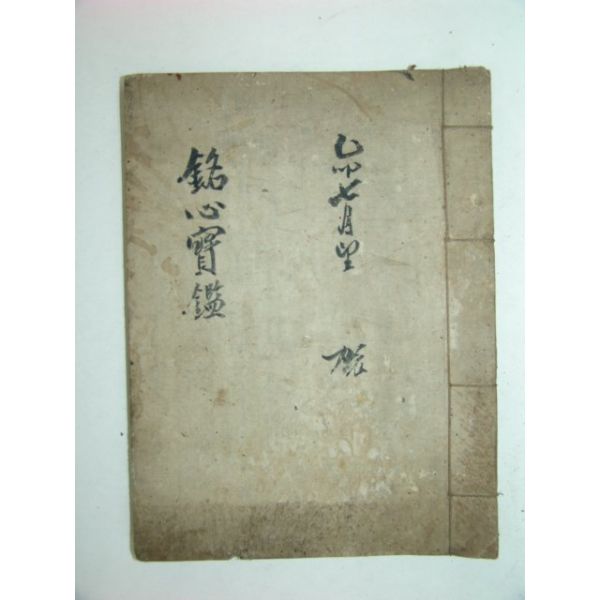 乙卯七月望
銘心寶鑑